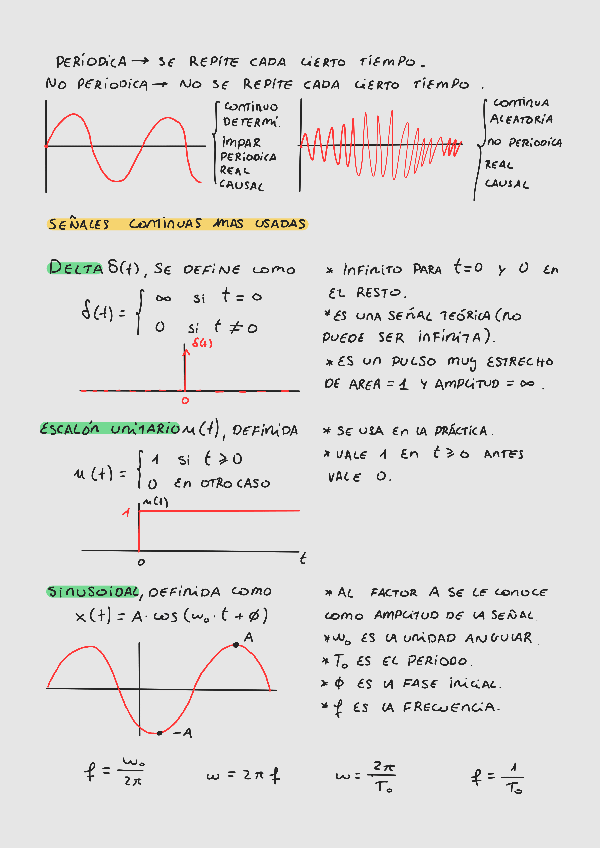 PERÍODICA → SE REPITE CADA CIERTO TIEMPO.
NO PERIODICA → NO SE REPITE CADA CIERTO TIEMPO.
CONTINUO
DETERMI.
IMPAR
PERIODICA
REAL
CAUSAL
CONTINUA
ALEATORIA
NO PERIODICA
REAL
CAUSAL
SEÑALES CONTINUAS MAS USADAS
DELTA δ(t), SE DEFINE COMO
δ(t) = { ∞ si t = 0
0 si t ≠ 0
δ(t)
0
* INFINITO PARA t=0 Y 0 EN
EL RESTO.
* ES UNA SEÑAL TEÓRICA (NO
PUEDE SER INFINITA).
* ES UN PULSO MUY ESTRECHO
DE AREA = 1 Y AMPLITUD = ∞.
ESCALÓN UNITARIO u(t), DEFINIDA
u(t) = { 1 si t ⩾ 0
0 EN OTRO CASO
u(t)
1
0
t
* SE USA EN LA PRÁCTICA.
* VALE 1 EN t ⩾ 0 ANTES
VALE 0.
SINUSOIDAL, DEFINIDA COMO
x(t) = A · cos (ω₀ · t + ϕ)
A
-A
* AL FACTOR A SE LE CONOCE
COMO AMPLITUD DE LA SEÑAL.
* ω₀ ES LA UNIDAD ANGULAR.
* T₀ ES EL PERIODO.
* ϕ ES LA FASE INICIAL.
* f ES LA FRECUENCIA.
f = ω₀/2π ω = 2π f ω = 2π/T₀ f = 1/T₀